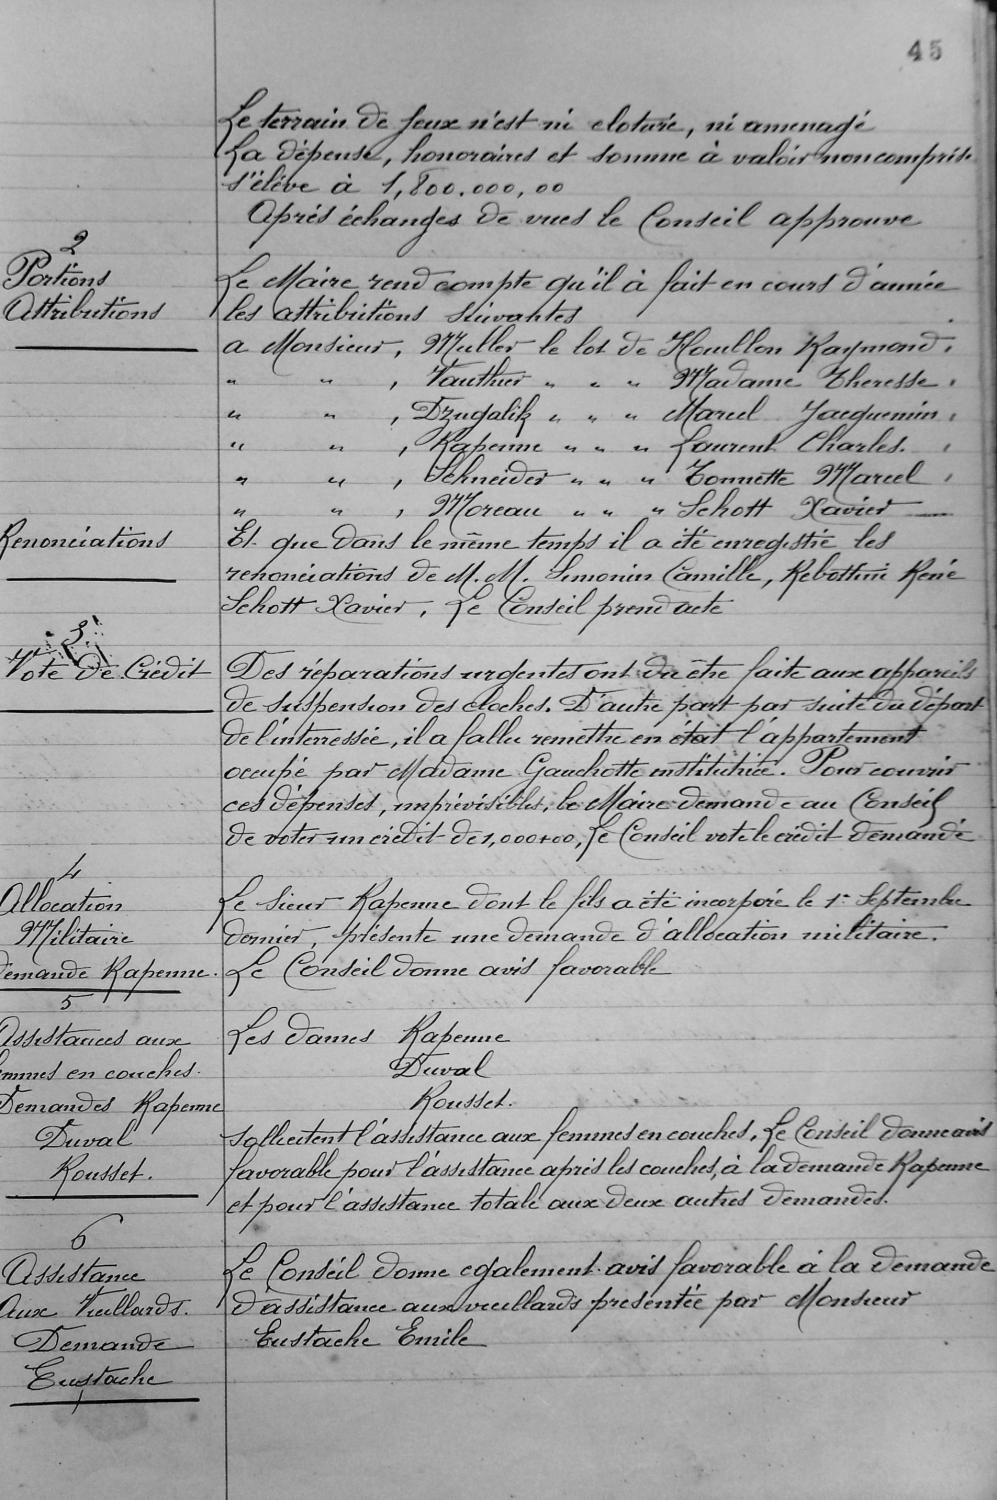 45
Le terrain de jeux n'est ni cloturé, ni amenagé
La dépense, honoraires et somme à valoir non compris
s'élève à 1,800.000,00
Après échanges de vues le Conseil approuve
2
Portions
Attributions
Le Maire rend compte qu'il à fait en cours d'année
les attributions suivantes
a Monsieur, Muller le lot de Houillon Raymond.
" " , Vauthier " " " Madame Theresse.
" " , Dzugalik " " " Marcel Jacquemin.
" " , Rapenne " " " Laurent Charles.
" " , Schneider " " " Tonnette Marcel.
" " , Moreau " " " Schott Xavier —
Renonciations
Et que dans le même temps il a été enregistré les
renonciations de M.M. Simonin Camille, Rebottini René
Schott Xavier, Le Conseil prend acte
3
Vote de Crédit
Des réparations urgentes ont du être faite aux appareils
de suspension des cloches. D'autre part par suite du départ
de l'interressée, il a fallu remettre en état l'appartement
occupé par Madame Gauchotte institutrice. Pour couvrir
ces dépenses, imprévisibles, le Maire demande au Conseil
de voter un crédit de 1,000+00, Le Conseil vote le crédit demandé
4
Allocation
Militaire
Demande Rapenne.
Le sieur Rapenne dont le fils a été incorporé le 1er Septembre
dernier, présente une demande d'allocation militaire.
Le Conseil donne avis favorable
5
Assistances aux
femmes en couches.
Demandes Rapenne
Duval
Rousset.
Les dames Rapenne
Duval
Rousset.
sollicitent l'assistance aux femmes en couches, Le Conseil donne avis
favorable pour l'assistance après les couches, à la demande Rapenne
et pour l'assistance totale aux deux autres demandes.
6
Assistance
Aux Vieillards.
Demande
Eustache
Le Conseil donne egalement avis favorable à la demande
d'assistance aux vieillards presentée par Monsieur
Eustache Emile